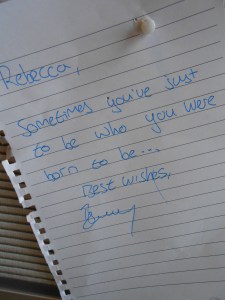 Rebecca,
Sometimes you've just
to be who you were
born to be...
Best wishes,